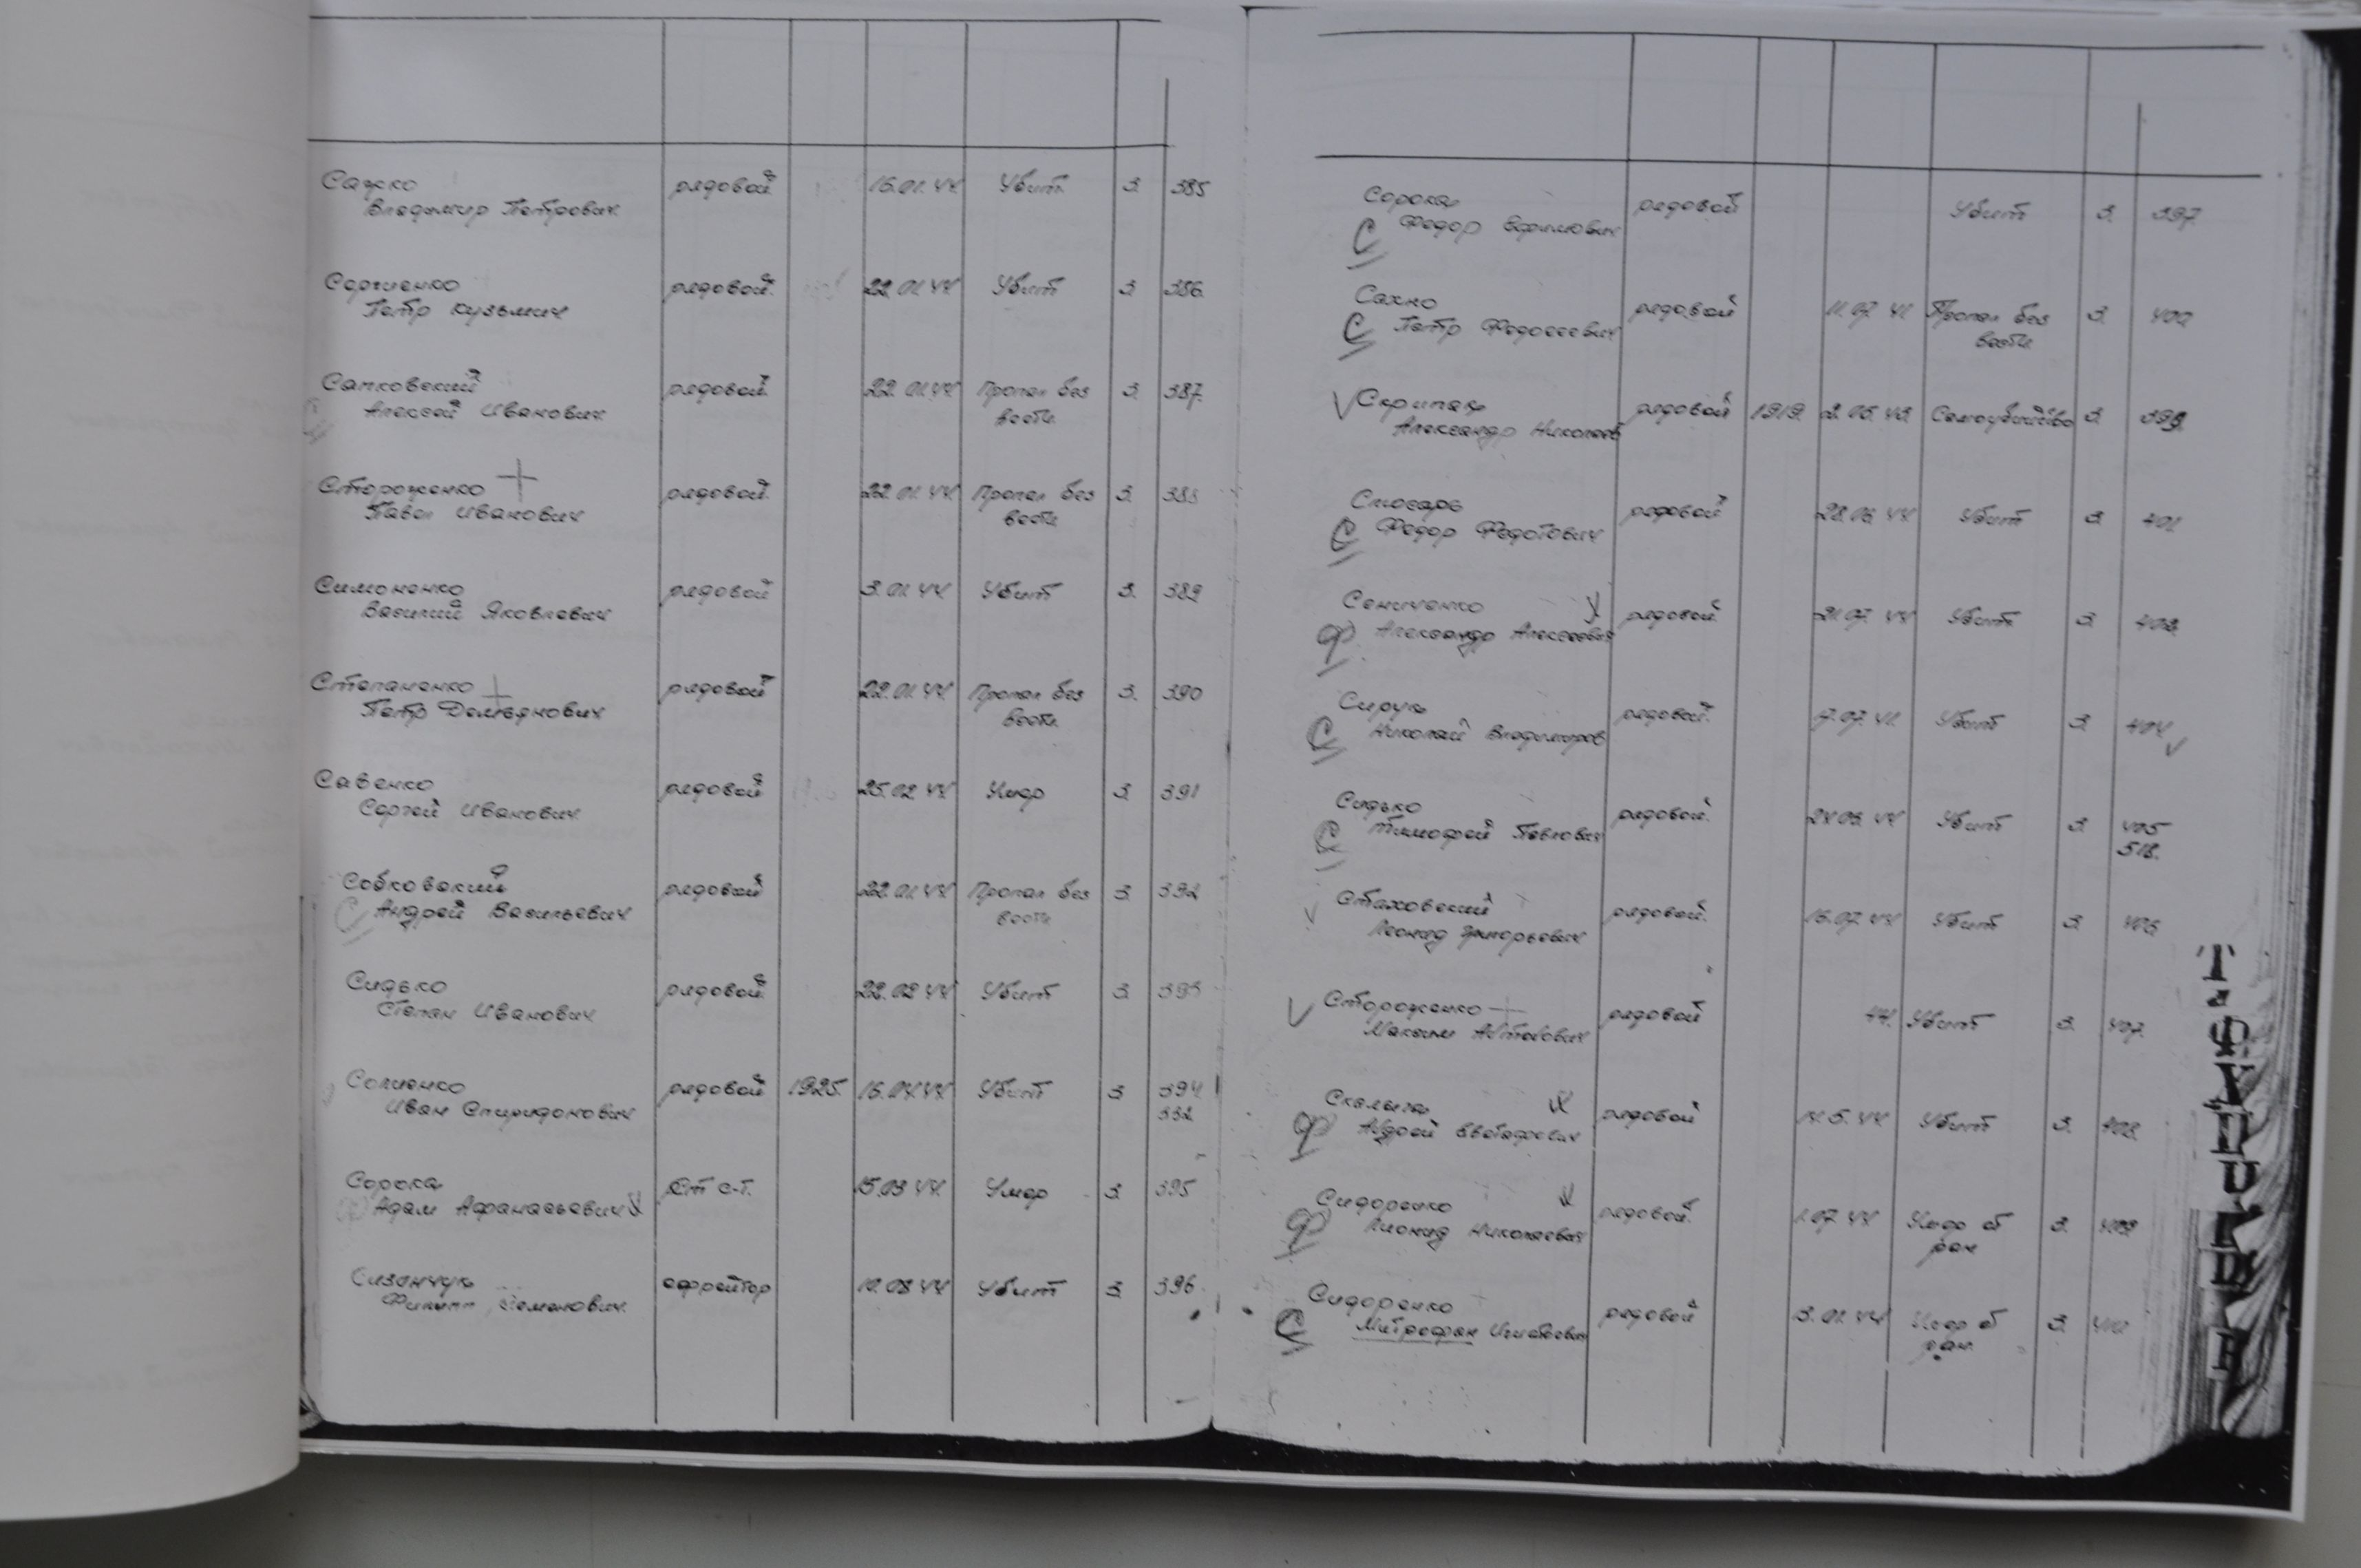 Сажко рядовой 16.01.44. Убит 3. 385
Владимир Петрович.
Сергиенко рядовой. 22.01.44. Убит 3. 386.
Петр Кузьмич
Сапковский рядовой. 22.01.44. Пропал без 3. 387.
Алексей Иванович. вести.
Стороженко рядовой. 22.01.44. Пропал без 3. 388
Павел Иванович вести
Симоненко рядовой 3.01.44. Убит 3. 389
Василий Яковлевич
Степаненко рядовой 22.01.44. Пропал без 3. 390
Петр Демьянович вести.
Савенко рядовой 25.02.44 Умер 3. 391
Сергей Иванович.
Собковский рядовой 22.01.44 Пропал без 3. 392
С Андрей Васильевич вести
Сидько рядовой. 22.02.44 Убит 3. 393
Степан Иванович
Солиенко рядовой 1925. 16.04.44. Убит 3 394
Иван Спиридонович 332
Сорока Ст с-т. 15.03.44. Умер 3. 395
Адам Афанасьевич
Сизанчук ефрейтор 10.03.44 Убит 3. 396.
Филипп Семенович.
Сорока рядовой Убит 3. 397.
С Федор Ефимович
Сахно рядовой Пропал без 3. 400
С Петр Федосеевич вести.
Скрипак рядовой 1919. Самоубийство 3. 399.
Александр Николаев
Слюсарь рядовой 28.06.44 Убит 3. 401.
С Федор Федотович
Сениченко рядовой. 21.07.44 Убит. 3. 403.
Ф Александр Алексеевич
Сирук рядовой. Убит 3. 404.
С Николай Владимиров
Сидько рядовой. Убит 3. 405
С Тимофей Павлович 518.
Стаховский рядовой. 16.07.44 Убит 3. 406
Леонид Григорьевич
Стороженко рядовой 44. Убит 3. 407.
Максим
рядовой 14.5.44 Убит 3. 408.
Ф Андрей Евстафович
Сидоренко рядовой. 1.07.44 Умер от 3. 409
Ф Леонид Николаевич ран
Сидоренко рядовой 3.01.44 Умер от 3. 410
С Митрофан Игнатович ран.
Т
Ф
Х